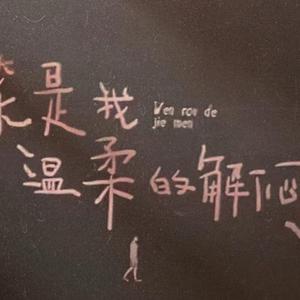 是我
Wen rou de
jie men
温柔的解